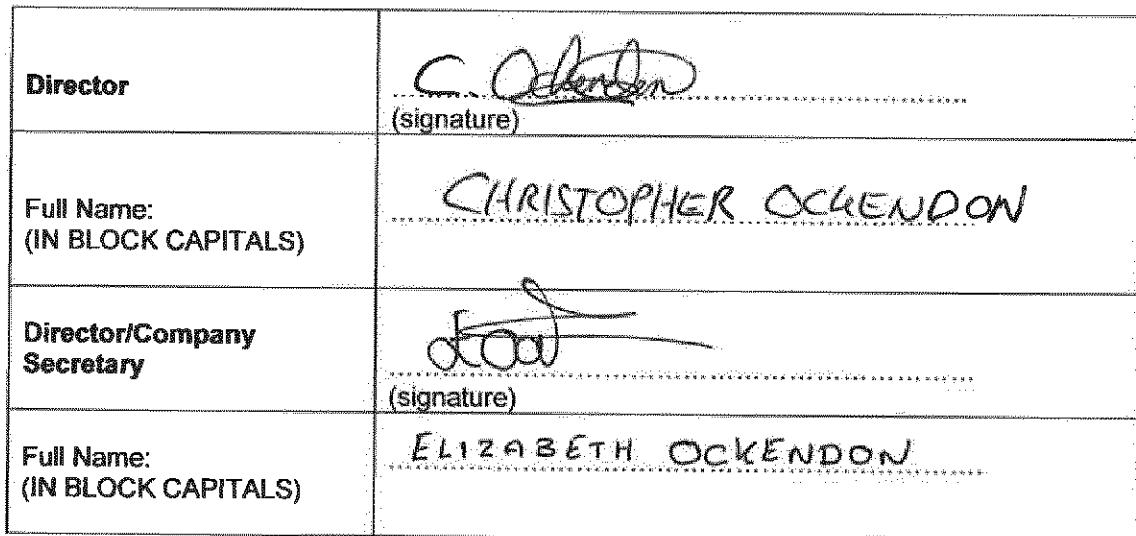 Director
C. Ockendon
(signature)
Full Name:
(IN BLOCK CAPITALS)
CHRISTOPHER OCKENDON
Director/Company
Secretary
(signature)
Full Name:
(IN BLOCK CAPITALS)
ELIZABETH OCKENDON